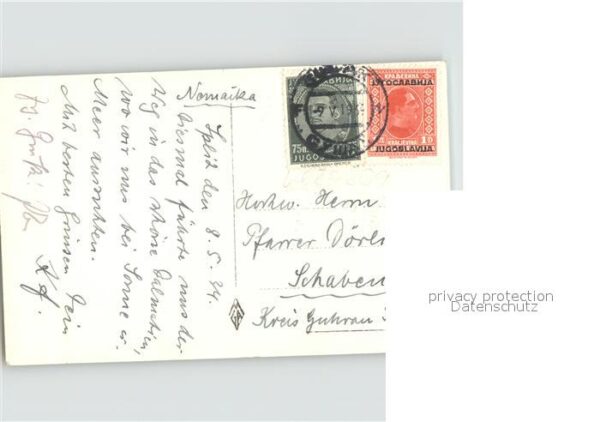 Nomaika
Split den 8.5.34.
diesmal führte uns der
Weg in das schöne Dalmatien,
wo wir uns bei Sonne u.
Meer ausruhten.
Mit besten Grüssen Dein
Hochw. Herrn
Pfarrer Dörl
Schaben
Kreis Guhrau
ЈУГОСЛАВИЈА
75
JUGOS
КРАЉЕВИНА
ЈУГОСЛАВИЈА
1
JUGOSLAVIJA
privacy protection
Datenschutz